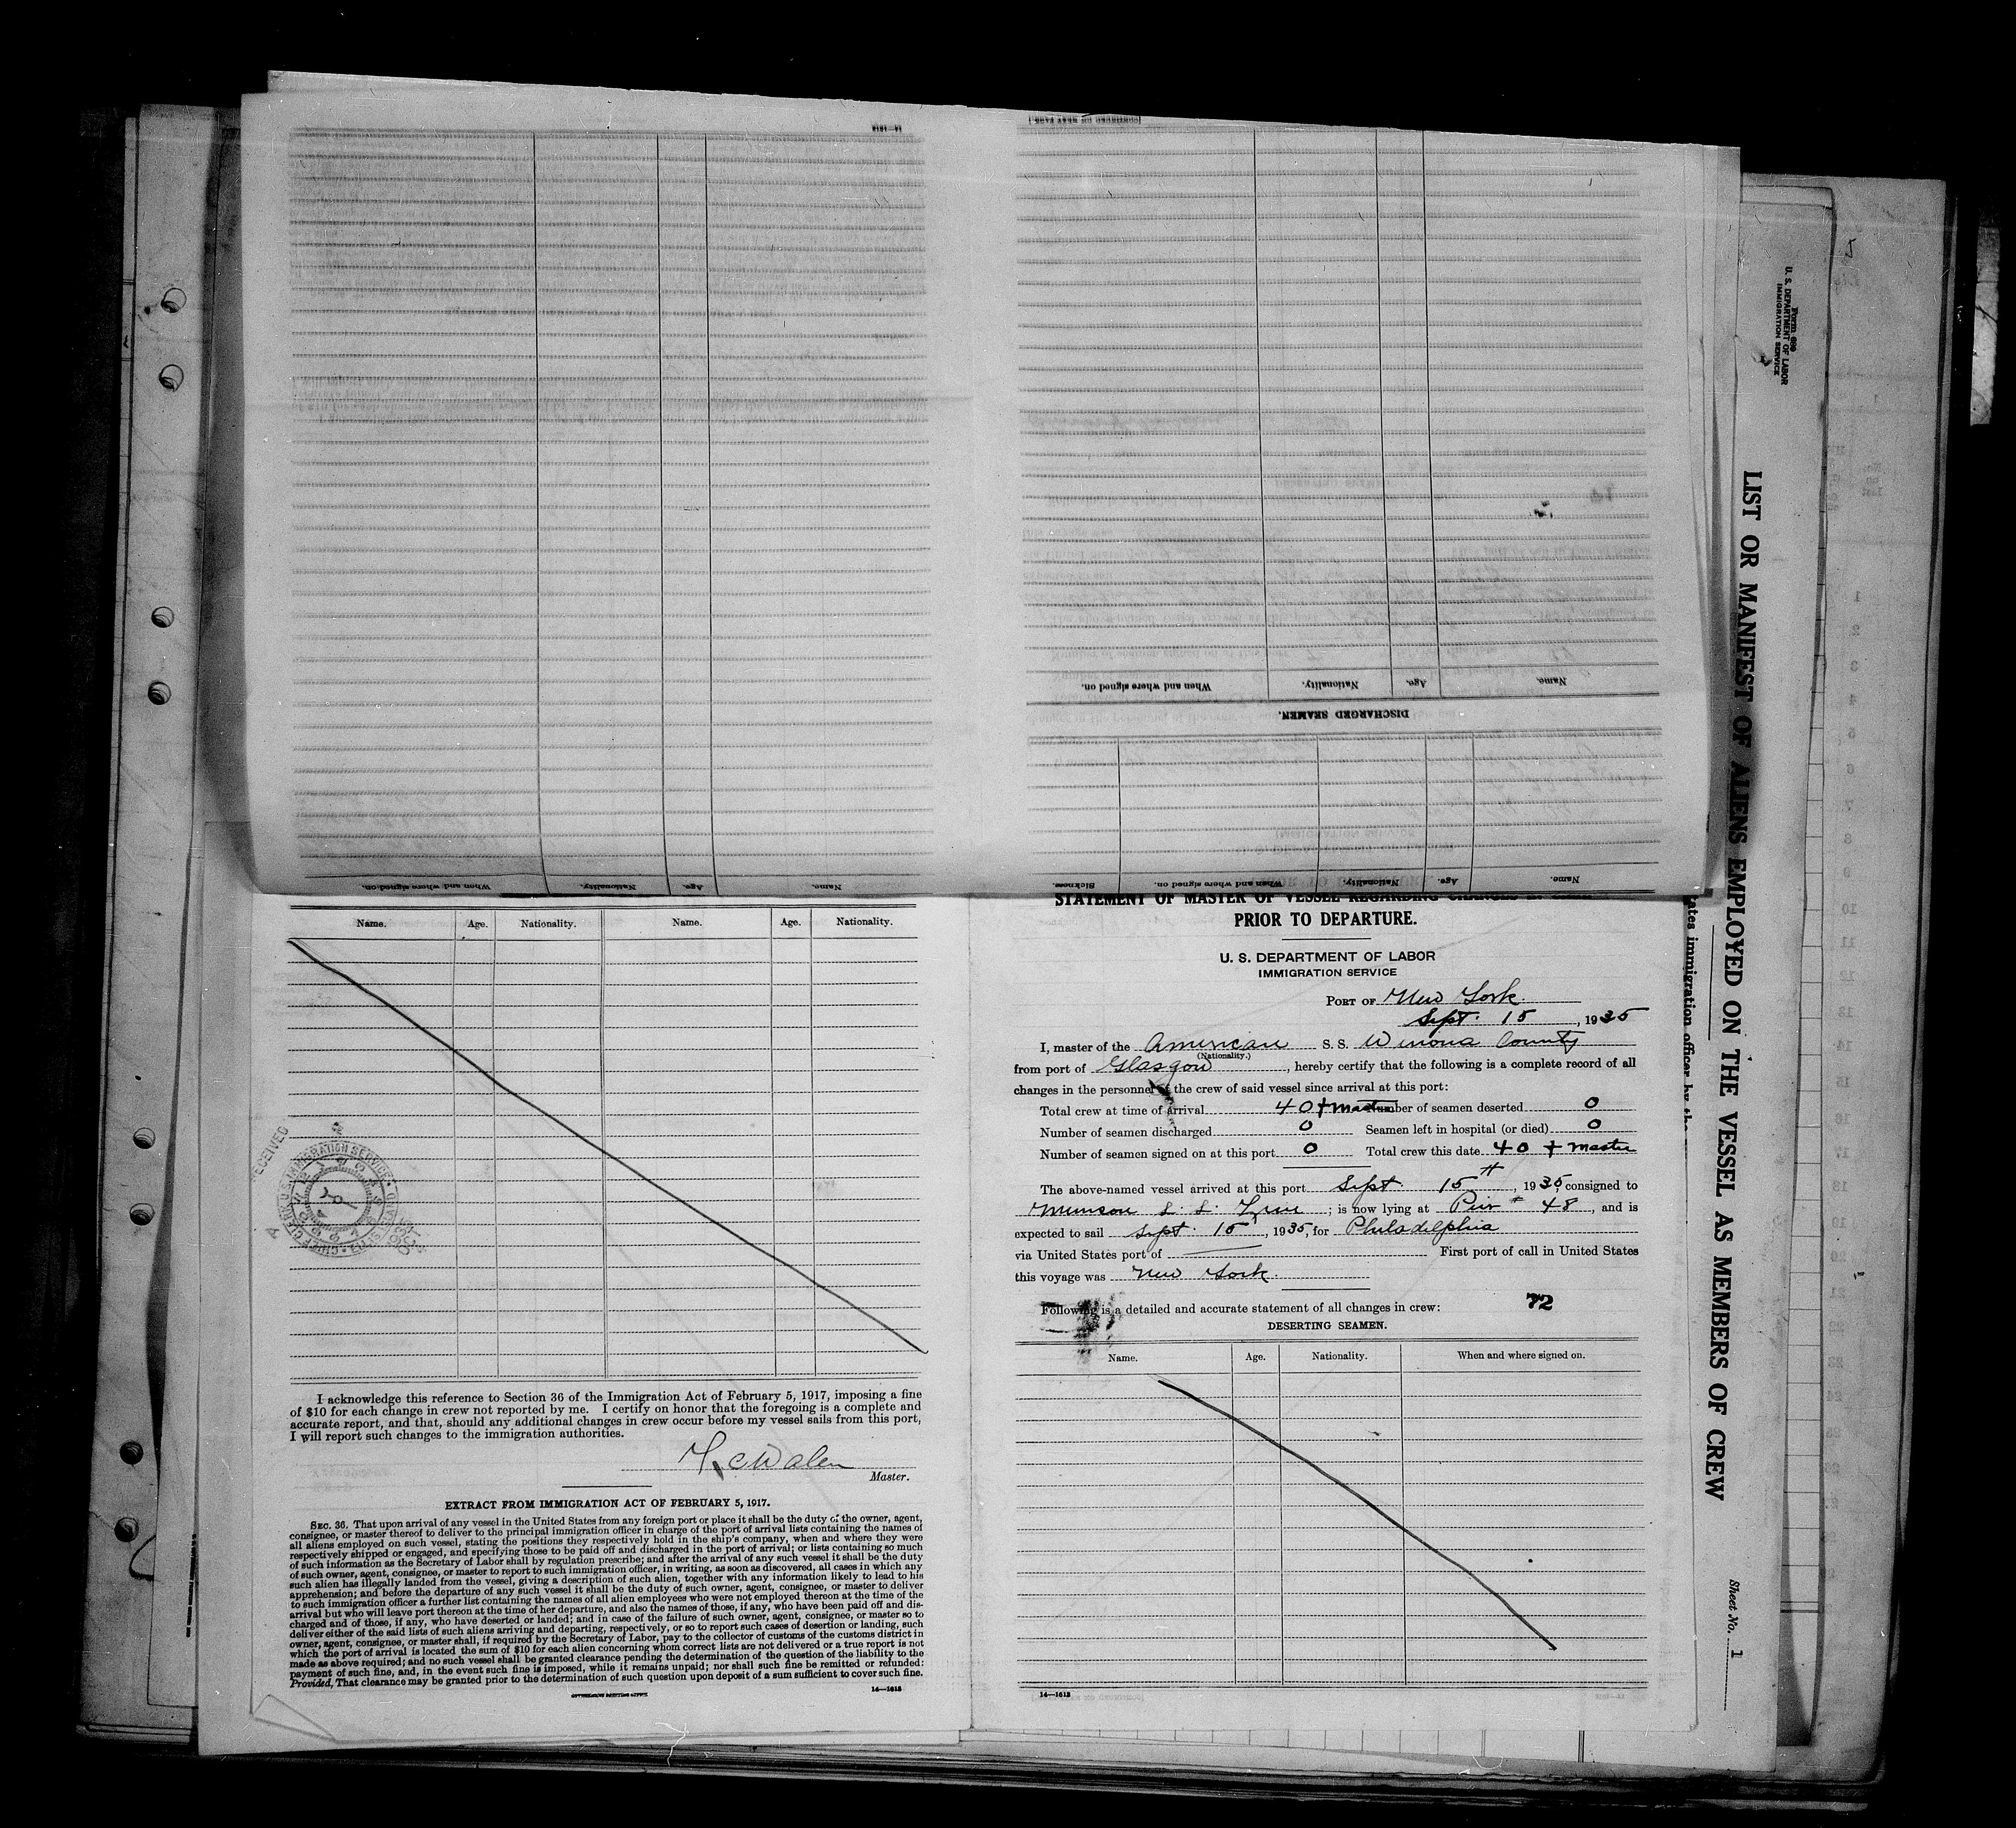 14—1613
When and where signed on.
Nationality.
Age.
Name.
DISCHARGED SEAMEN.
Name. Age. Nationality. When and where signed on.
Name. Age. Nationality. When and where signed on. Sickness.
Name. Age. Nationality. Name. Age. Nationality.
RECEIVED
I acknowledge this reference to Section 36 of the Immigration Act of February 5, 1917, imposing a fine
of $10 for each change in crew not reported by me. I certify on honor that the foregoing is a complete and
accurate report, and that, should any additional changes in crew occur before my vessel sails from this port,
I will report such changes to the immigration authorities.
Master.
EXTRACT FROM IMMIGRATION ACT OF FEBRUARY 5, 1917.
SEC. 36. That upon arrival of any vessel in the United States from any foreign port or place it shall be the duty of the owner, agent,
consignee, or master thereof to deliver to the principal immigration officer in charge of the port of arrival lists containing the names of
all aliens employed on such vessel, stating the positions they respectively hold in the ship's company, when and where they were
respectively shipped or engaged, and specifying those to be paid off and discharged in the port of arrival; or lists containing so much
of such information as the Secretary of Labor shall by regulation prescribe; and after the arrival of any such vessel it shall be the duty
of such owner, agent, consignee, or master to report to such immigration officer, in writing, as soon as discovered, all cases in which any
such alien has illegally landed from the vessel, giving a description of such alien, together with any information likely to lead to his
apprehension; and before the departure of any such vessel it shall be the duty of such owner, agent, consignee, or master to deliver
to such immigration officer a further list containing the names of all alien employees who were not employed thereon at the time of the
arrival but who will leave port thereon at the time of her departure, and also the names of those, if any, who have been paid off and dis-
charged and of those, if any, who have deserted or landed; and in case of the failure of such owner, agent, consignee, or master so to
deliver either of the said lists of such aliens arriving and departing, respectively, or so to report such cases of desertion or landing, such
owner, agent, consignee, or master shall, if required by the Secretary of Labor, pay to the collector of customs of the customs district in
which the port of arrival is located the sum of $10 for each alien concerning whom correct lists are not delivered or a true report is not
made as above required; and no such vessel shall be granted clearance pending the determination of the question of the liability to the
payment of such fine, and, in the event such fine is imposed, while it remains unpaid; nor shall such fine be remitted or refunded:
Provided, That clearance may be granted prior to the determination of such question upon deposit of a sum sufficient to cover such fine.
14—1613
STATEMENT OF MASTER OF VESSEL REGARDING CHANGES
PRIOR TO DEPARTURE.
U. S. DEPARTMENT OF LABOR
IMMIGRATION SERVICE
PORT OF New York
Sept. 15, 1935
I, master of the American S. S. Winona County
(Nationality.)
from port of Glasgow, hereby certify that the following is a complete record of all
changes in the personnel of the crew of said vessel since arrival at this port:
Total crew at time of arrival 40 + Master Number of seamen deserted 0
Number of seamen discharged 0 Seamen left in hospital (or died) 0
Number of seamen signed on at this port 0 Total crew this date 40 + Master
The above-named vessel arrived at this port Sept 15th, 1935, consigned to
Munson S. S. Line; is now lying at Pier # 48, and is
expected to sail Sept. 15, 1935, for Philadelphia
via United States port of First port of call in United States
this voyage was New York.
Following is a detailed and accurate statement of all changes in crew: 72
DESERTING SEAMEN.
Name. Age. Nationality. When and where signed on.
14—1613
Form 689
U. S. DEPARTMENT OF LABOR
IMMIGRATION SERVICE
LIST OR MANIFEST OF ALIENS EMPLOYED ON THE VESSEL AS MEMBERS OF CREW
Sheet No. 1
tates immigration officer by th
5